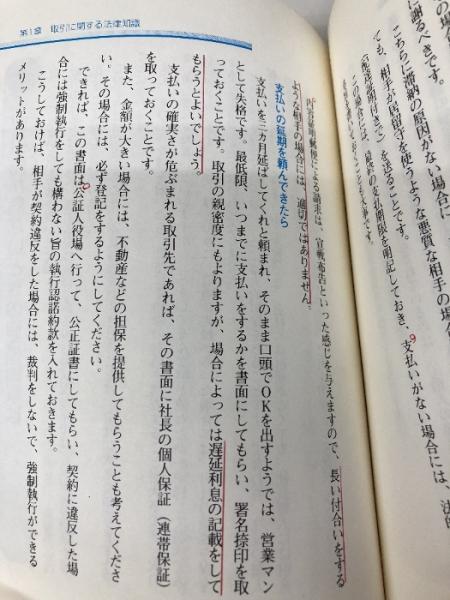 第1章 取引に関する法律知識
に謝るべきです。
こちらに滞納の原因がない場合に
ても、相手が居留守を使うような悪質な相手の場
（配達証明付き）を送ることです。
この場合には、最終の支払期限を明記しておき、支払いがない場合には、法
内容証明郵便による請求は、宣戦布告といった感じを与えますので、長い付合いをする
ような相手の場合には、適切ではありません。
支払いの延期を頼んできたら
支払いを三カ月延ばしてくれと頼まれ、そのまま口頭でOKを出すようでは、営業マン
として失格です。最低限、いつまでに支払いをするかを書面にしてもらい、署名捺印を取
っておくことです。取引の親密度にもよりますが、場合によっては遅延利息の記載をして
もらうとよいでしょう。
支払いの確実さが危ぶまれる取引先であれば、その書面に社長の個人保証（連帯保証）
を取っておくことです。
また、金額が大きい場合には、不動産などの担保を提供してもらうことも考えてくださ
い。その場合には、必ず登記をするようにしてください。
できれば、この書面は公証人役場へ行って、公正証書にしてもらい、契約に違反した場
合には強制執行をしても構わない旨の執行認諾約款を入れておきます。
こうしておけば、相手が契約違反をした場合には、裁判をしないで、強制執行ができる
メリットがあります。